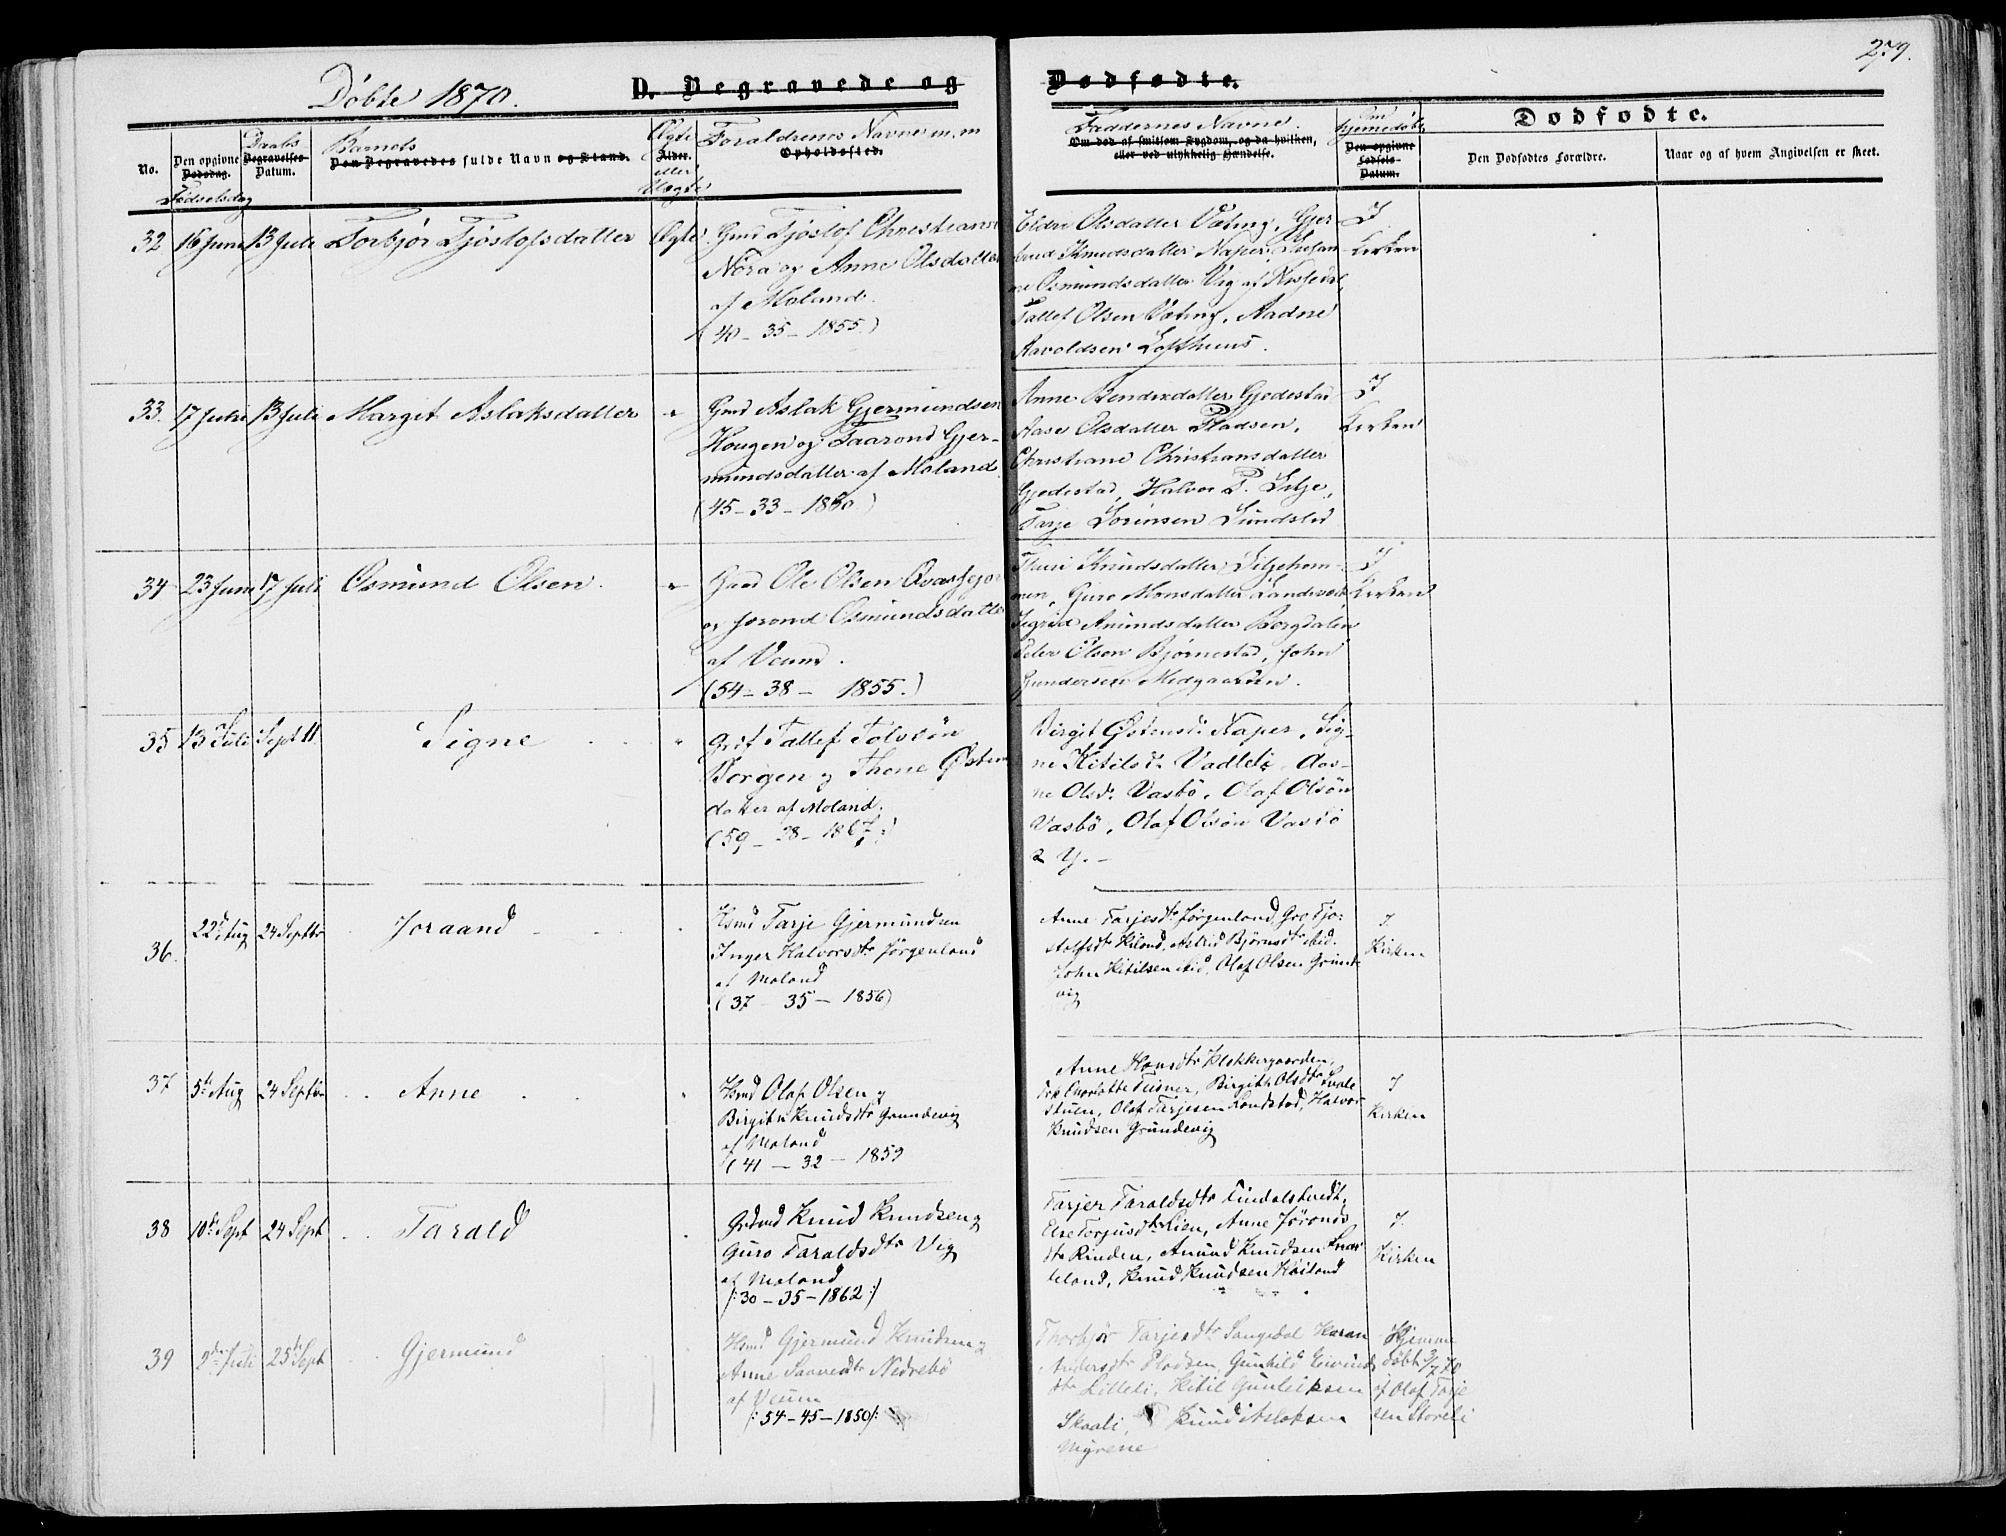 279.
Döbte 1870.
D. Begravede og
Dødfødte.
No.
Den opgivne
Dødsdag.
Fødselsdag
Daabs
Begravelses-
Datum.
Barnets
Den Begravedes fulde Navn og Stand.
Ægte
Alder.
eller
Uægte
Foraldrenes Navne m. m
Opholdssted.
Faddernes Navne.
Om død af smitsom Sygdom, og da hvilken,
eller ved ulykkelig Hændelse.
Om
hjemmedöbt
Den opgivne
Fødsels-
Datum.
Dødfødte.
Den Dødfødtes Forældre.
Naar og af hvem Angivelsen er skeet.
32 16 Juni 13 Juli Torbjør Tjøstofsdatter Ægte
Gmd Tjøstof Christians
Nora og Anne Olsdatter
af Moland.
(40 - 35 - 1855.)
Olsdatter Vating, Gjer-
trud Knudsdatter Naper,
ne Osmundsdatter Vig af
Tallef Olsen Vating, Aadne
Aavoldsen Lofthuus.
I
Kirken
33. 17 Juni 13 Juli Margit Aslaksdatter "
Gmd Aslak Gjermundsen
Hougen og Taarond Gjer-
mundsdatter af Moland
(45 - 33 - 1860)
Anne Bendixdatter Gjedestad
Aase Olsdatter Pladsen,
Christiane Christiansdatter
Gjedestad, Halvor P. Lilje,
Tarje Sörensen Sundsled
I
Kirken
34 23 Juni 17 Juli Osmund Olsen. "
Gaard Ole Olsen
og Jorond Osmundsdatter
af Veum.
(54 - 38 - 1855.)
Knudsdatter
men, Guro Monsdatter
Sigrid Anundsdatter Bergdalen
Peder Olsen Bjørnestad, John
Gundersen Midgaarden.
I
Kirken
35 13 Juli Sept 11 Signe "
Grdf Tallef Tolvsön
Borgen og Thone Østens
datter af Moland.
(59 - 28 - 1867.)
Birgit Østensd. Naper, Sig-
ne Kitilsd. Vadleli, Aas-
ne Olsd. Vasbö, Olaf Olsön
Vasbö, Olaf Olsön Vasbö
2 Y. -
36. 22d Aug 24 Septbr Joraand
Hsmd Tarje Gjermundsen
Inger Halvorsdtr Jörgenland
af Moland
(37 - 35 - 1856)
Anne Tarjesdtr Jörgenland, Gro Tjo-
stolfsdtr Kiland, Astrid Björnsdtr ibid.
John Kitilsen ibid, Olaf Olsen Grund-
vig
I.
Kirken
37 5te Aug 24 Septbr Anne "
Hsmd Olaf Olsen og
Birgith Knudsdtr Grundevig
af Moland
(41 - 32 - 1859
Anne Hansdtr Klokkergaarden,
Frk Charlotte Teisner, Birgith Olsdtr
stuen, Olaf Tarjesen Sondstad, Halvor
Knudsen Grundevig
I
Kirken
38 10de Sept 24 Sept Tarald
Grdmd Knud Knudsen og
Guro Taraldsdtr Vig
af Moland
/: 30 - 35 - 1862 :/
Tarjer Taraldsdtr Tindalstvedt,
Else Torjusdtr Lien, Anne Jöronds
dtr Rinden, Anund Knudsen
leland, Knud Knudsen Kåiland
I.
Kirken
39 2de Juli 25de Sept Gjermund
Hsmd Gjermund Knudsen og
Anne Saavesdtr Nedrebö
af Veum
/: 54 - 45 - 1850 :/
Thorbjör Tarjesdtr Saugedal Karen
Andersdtr Pladsen, Gunhild Eivinds
dtr Lilleli, Kitil Gunleiksen
Skaali, Knud Aslaksen
Myrene
Hjemme
döbt 3/7 70
af Olaf Tarje
sen Storeli